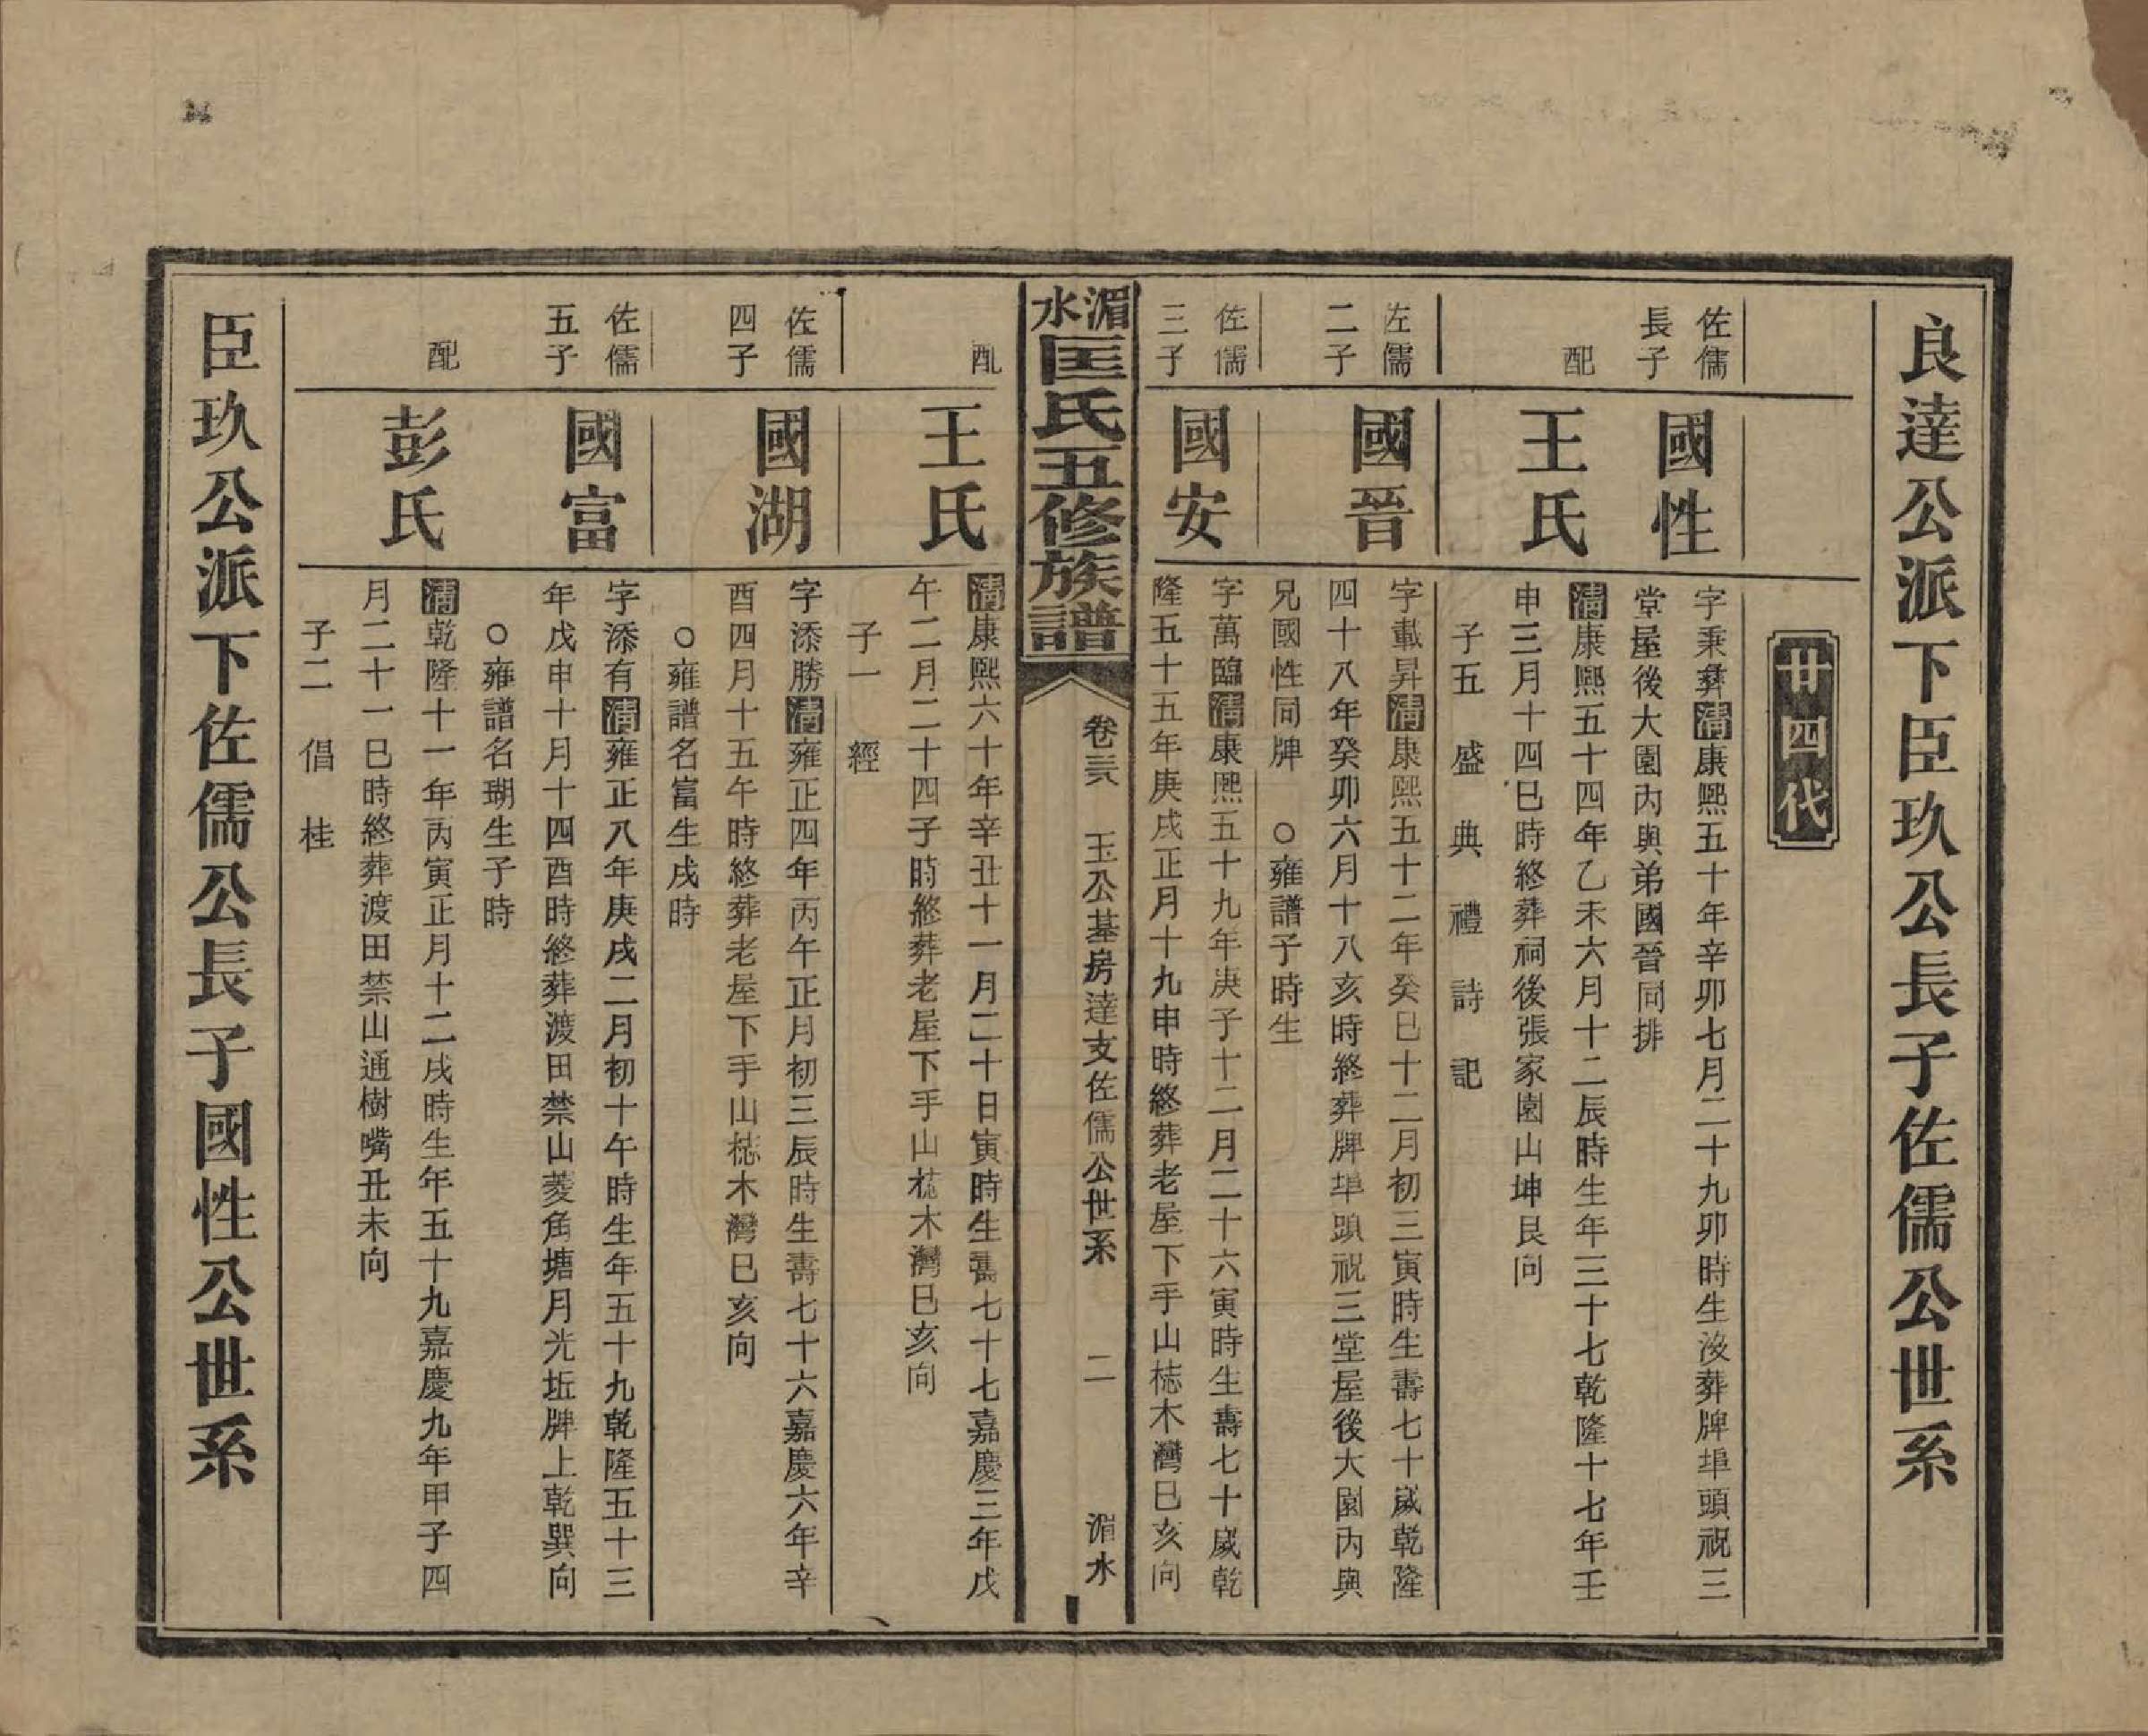 良達公派下臣玖公長子佐儒公世系
廿四代
佐儒
長子
國性
字秉彝清康熙五十年辛卯七月二十九卯時生沒葬牌埠頭祝三
堂屋後大園內與弟國晉同排
配
王氏
清康熙五十四年乙未六月十二辰時生年三十七乾隆十七年壬
申三月十四巳時終葬祠後張家園山坤艮向
子五　盛　典　禮　詩　記
佐儒
二子
國晉
字載昇清康熙五十二年癸巳十二月初三寅時生壽七十歲乾隆
四十八年癸卯六月十八亥時終葬牌埠頭祝三堂屋後大園內與
兄國性同牌　○雍譜子時生
佐儒
三子
國安
字萬臨清康熙五十九年庚子十二月二十六寅時生壽七十歲乾
隆五十五年庚戌正月十九申時終葬老屋下手山梽木灣巳亥向
湄水匡氏五修族譜
卷三六　玉公基房達支佐儒公世系　二　湄水
配
王氏
清康熙六十年辛丑十一月二十日寅時生壽七十七嘉慶三年戊
午二月二十四子時終葬老屋下手山梽木灣巳亥向
子一　經
佐儒
四子
國湖
字添勝清雍正四年丙午正月初三辰時生壽七十六嘉慶六年辛
酉四月十五午時終葬老屋下手山梽木灣巳亥向
○雍譜名富生戌時
佐儒
五子
國富
字添有清雍正八年庚戌二月初十午時生年五十九乾隆五十三
年戊申十月十四酉時終葬渡田禁山菱角塘月光坵牌上乾巽向
○雍譜名瑚生子時
配
彭氏
清乾隆十一年丙寅正月十二戌時生年五十九嘉慶九年甲子四
月二十一巳時終葬渡田禁山通樹嘴丑未向
子二　倡　桂
臣玖公派下佐儒公長子國性公世系